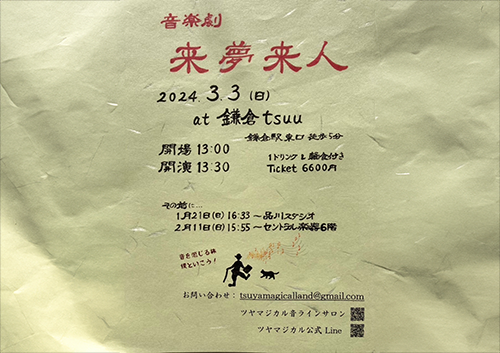 音楽劇
来夢来人
2024.3.3(日)
at 鎌倉tsuu
鎌倉駅東口 徒歩5分
開場 13:00
開演 13:30
1ドリンク & 軽食付き
Ticket 6600円
その前に…
1月21日(日) 16:33〜品川スタジオ
2月11日(日) 15:55〜セントラル楽器6階
音を感じる旅
僕といこう!
お問い合わせ: tsuyamagicalland@gmail.com
ツヤマジカル音ラインサロン
ツヤマジカル公式 Line